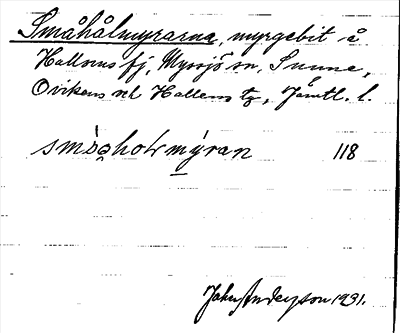 Småhålmyrarna, myrgebit å
Hallens fj, Myssjö sn, Sunne,
Ovikens och Hallens tg, Jämtl. l.
118
Andersson 1931.